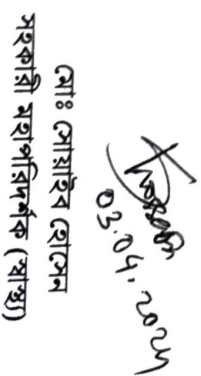 Hossain
03.04.2024
মোঃ সোয়াইব হোসেন
সহকারী মহাপরিদর্শক (স্বাস্থ্য)